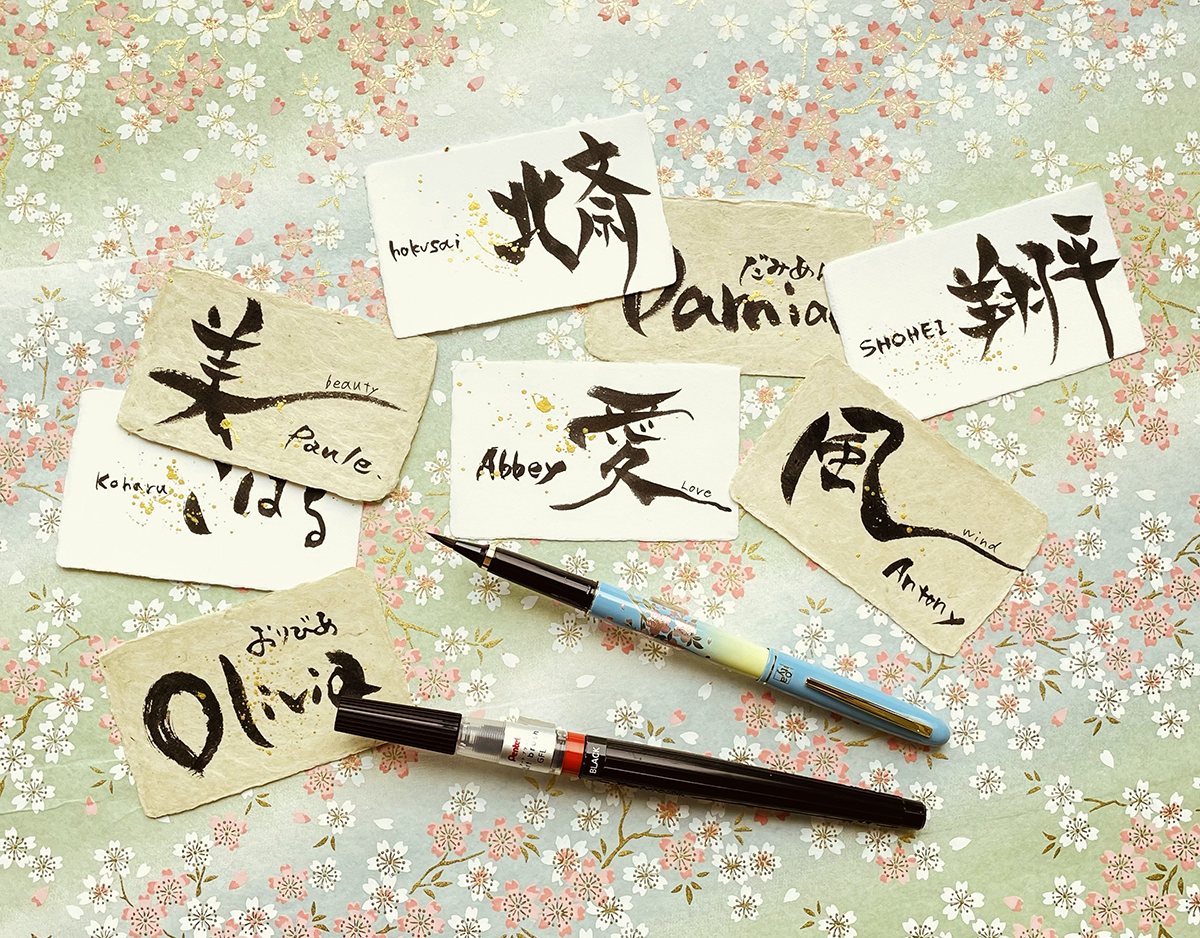 北斎
hokusai
だみあん
Damia
翔平
SHOHEI
美
beauty
Paule.
Koharu
こはる
愛
Abbey
Love
風
wind
Antony
おりびあ
Olivia
Pentel
BLACK